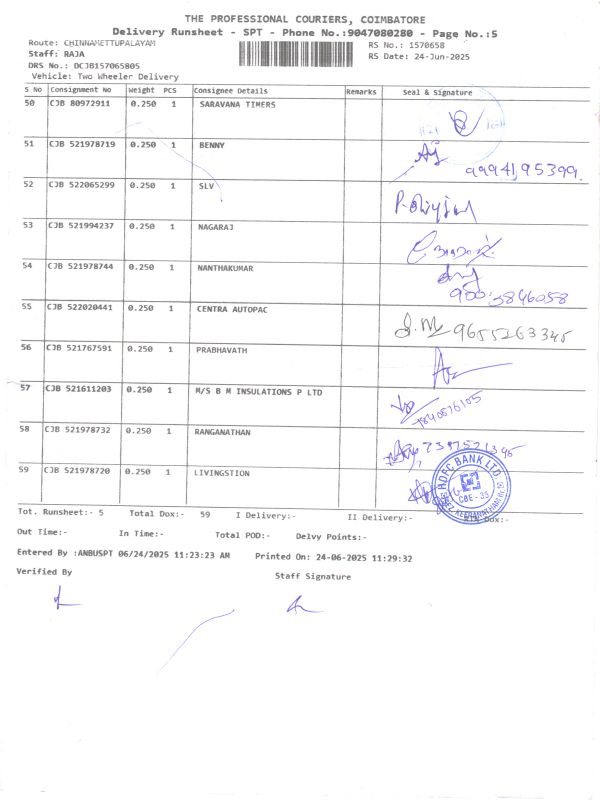 THE PROFESSIONAL COURIERS, COIMBATORE
Delivery Runsheet - SPT - Phone No.:9047080280 - Page No.:5
Route: CHINNAMETTUPALAYAM
RS No.: 1570658
Staff: RAJA
RS Date: 24-Jun-2025
DRS No.: DCJB157065805
Vehicle: Two Wheeler Delivery
S No Consignment No Weight PCS Consignee Details Remarks Seal & Signature
50 CJB 80972911 0.250 1 SARAVANA TIMERS
51 CJB 521978719 0.250 1 BENNY
9994195399
52 CJB 522065299 0.250 1 SLV
53 CJB 521994237 0.250 1 NAGARAJ
54 CJB 521978744 0.250 1 NANTHAKUMAR
55 CJB 522020441 0.250 1 CENTRA AUTOPAC
56 CJB 521767591 0.250 1 PRABHAVATH
57 CJB 521611203 0.250 1 M/S B M INSULATIONS P LTD
58 CJB 521978732 0.250 1 RANGANATHAN
59 CJB 521978720 0.250 1 LIVINGSTION
HDFC BANK LTD.
CBE - 35
Tot. Runsheet:- 5 Total Dox:- 59 I Delivery:- II Delivery:- Dox:-
Out Time:- In Time:- Total POD:- Delvy Points:-
Entered By :ANBUSPT 06/24/2025 11:23:23 AM Printed On: 24-06-2025 11:29:32
Verified By
Staff Signature